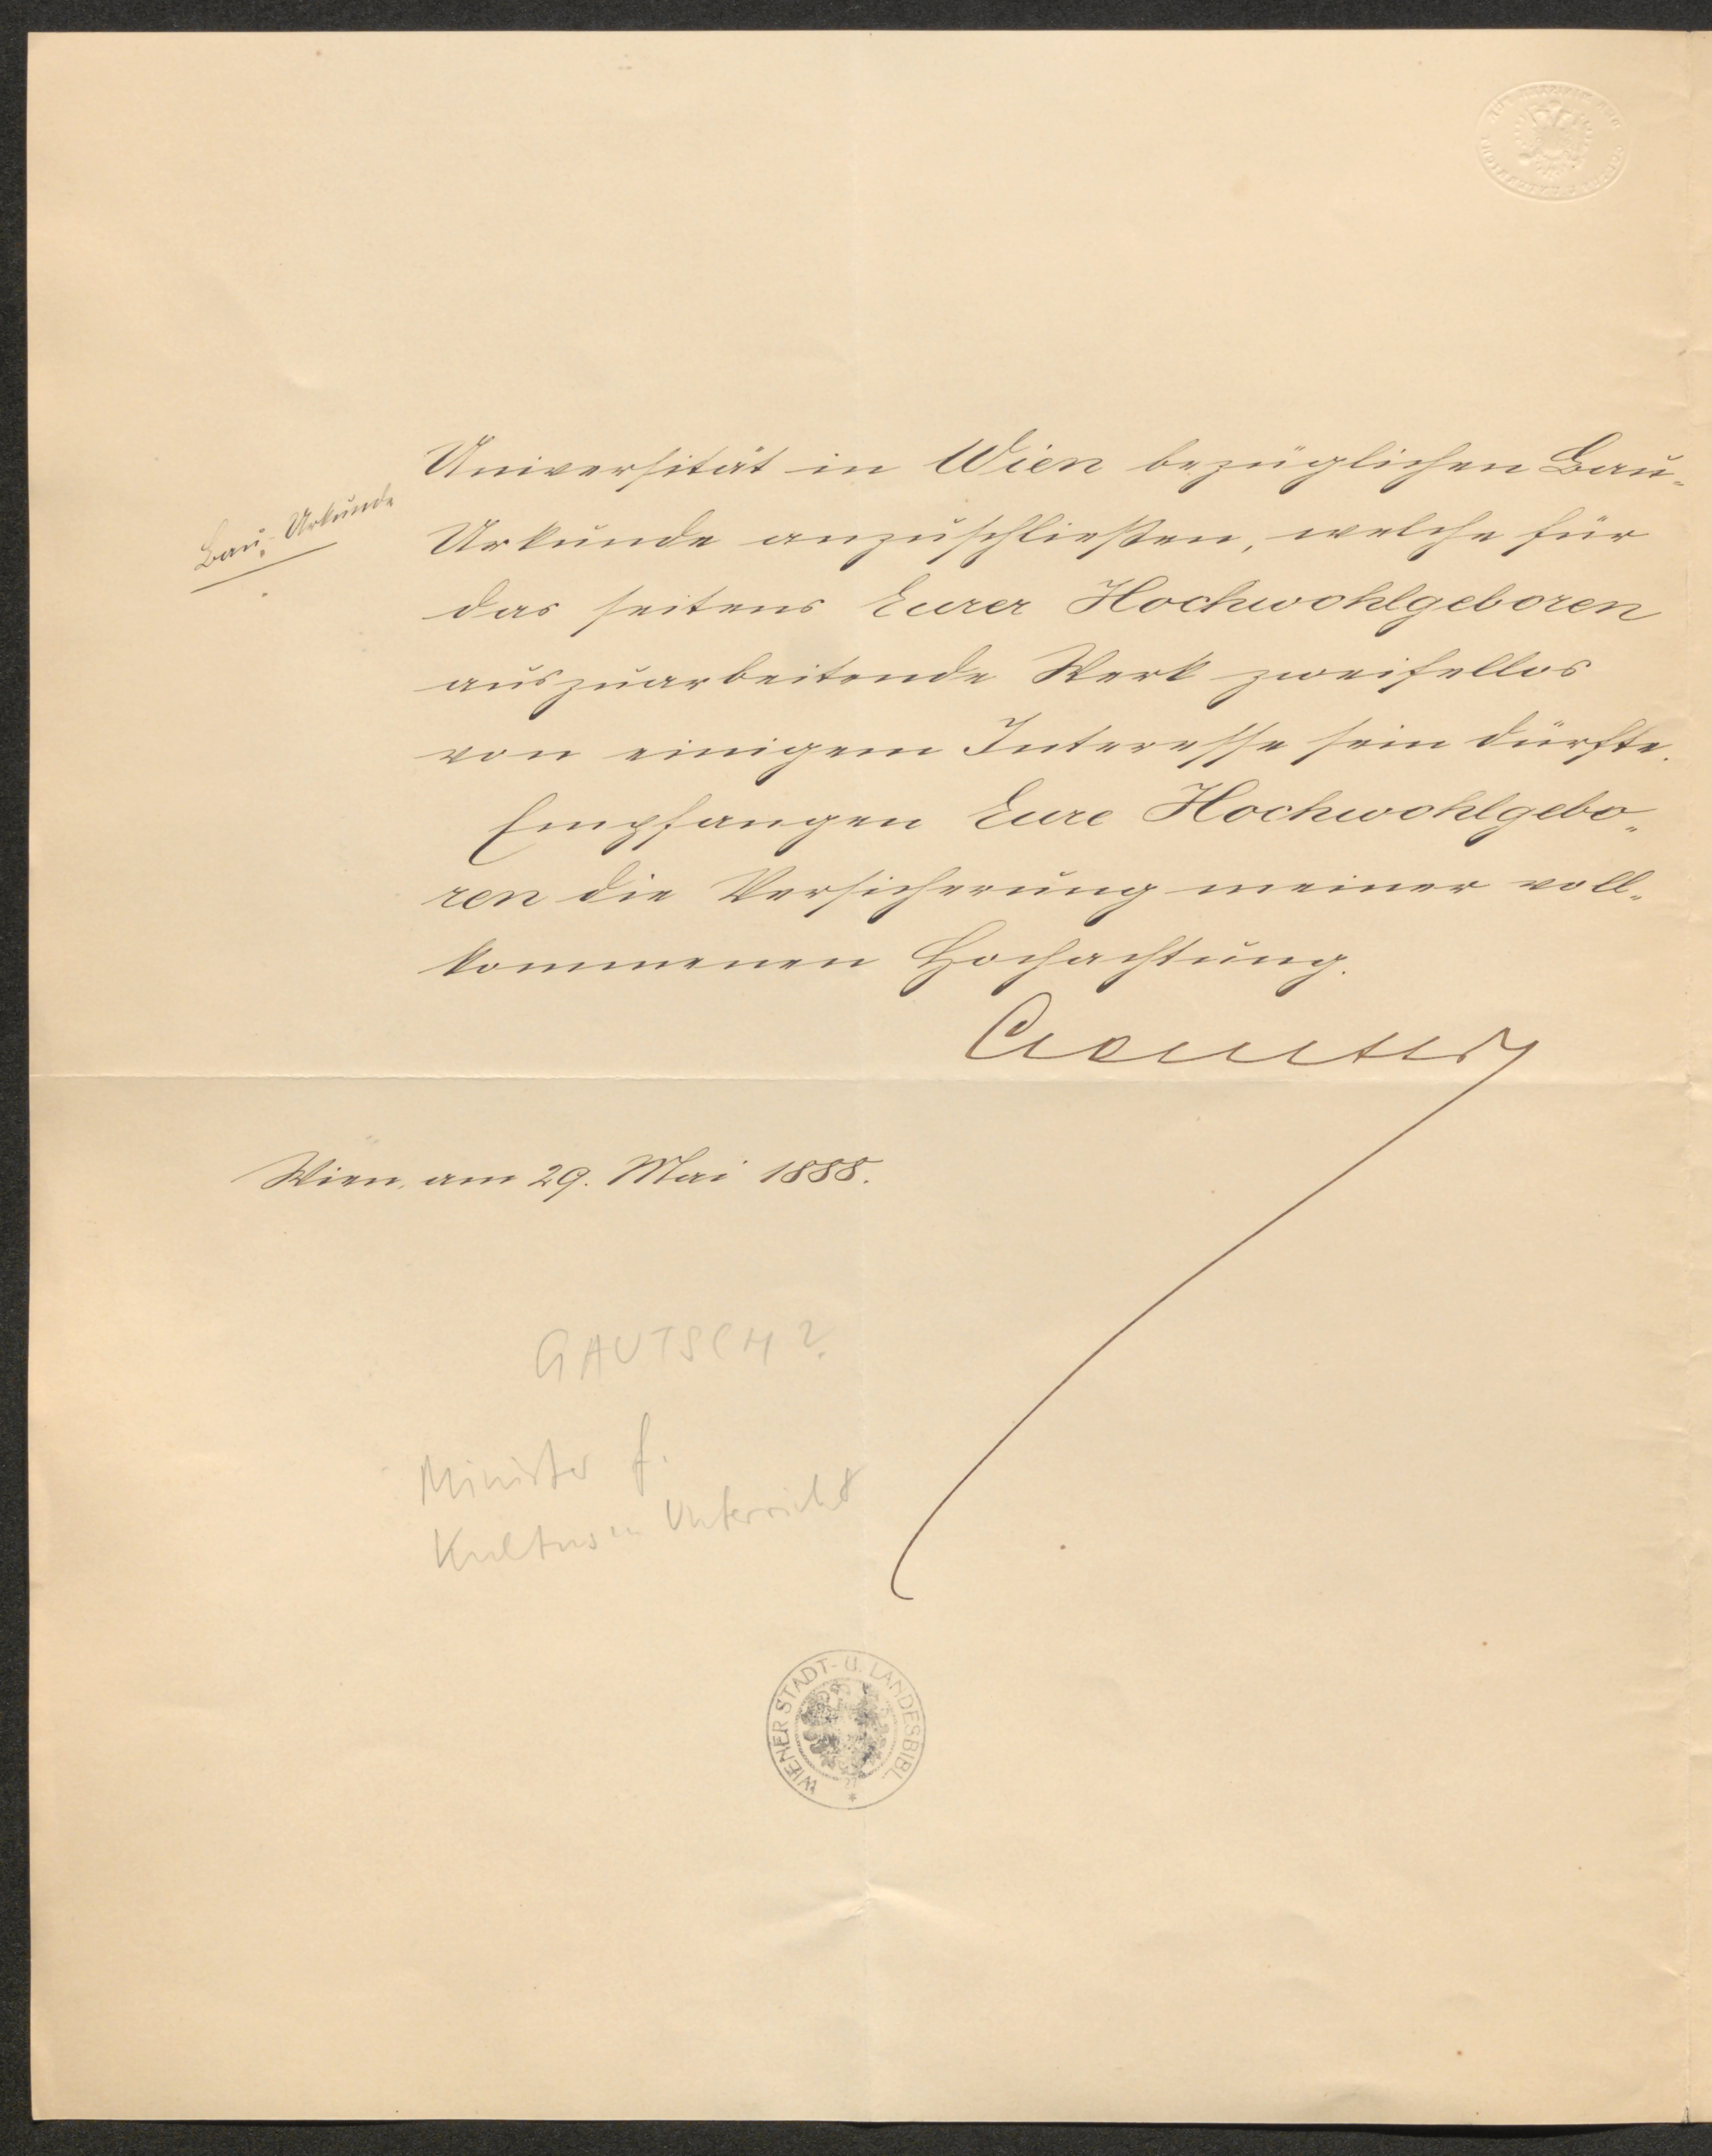 Universität in Wien bezüglichen Bau-
Bau-Urkunde
Urkunde anzuschließen, welche für
das seitens Eurer Hochwohlgeboren
auszuarbeitende Werk zweifellos
von einigem Interesse sein dürfte.
Empfangen Eure Hochwohlgebo-
ren die Versicherung meiner voll-
kommenen Hochachtung.
Wien, am 29. Mai 1888.
GAUTSCH?
Minister f.
Kultus u Unterricht
WIENER STADT- U. LANDESBIBL.